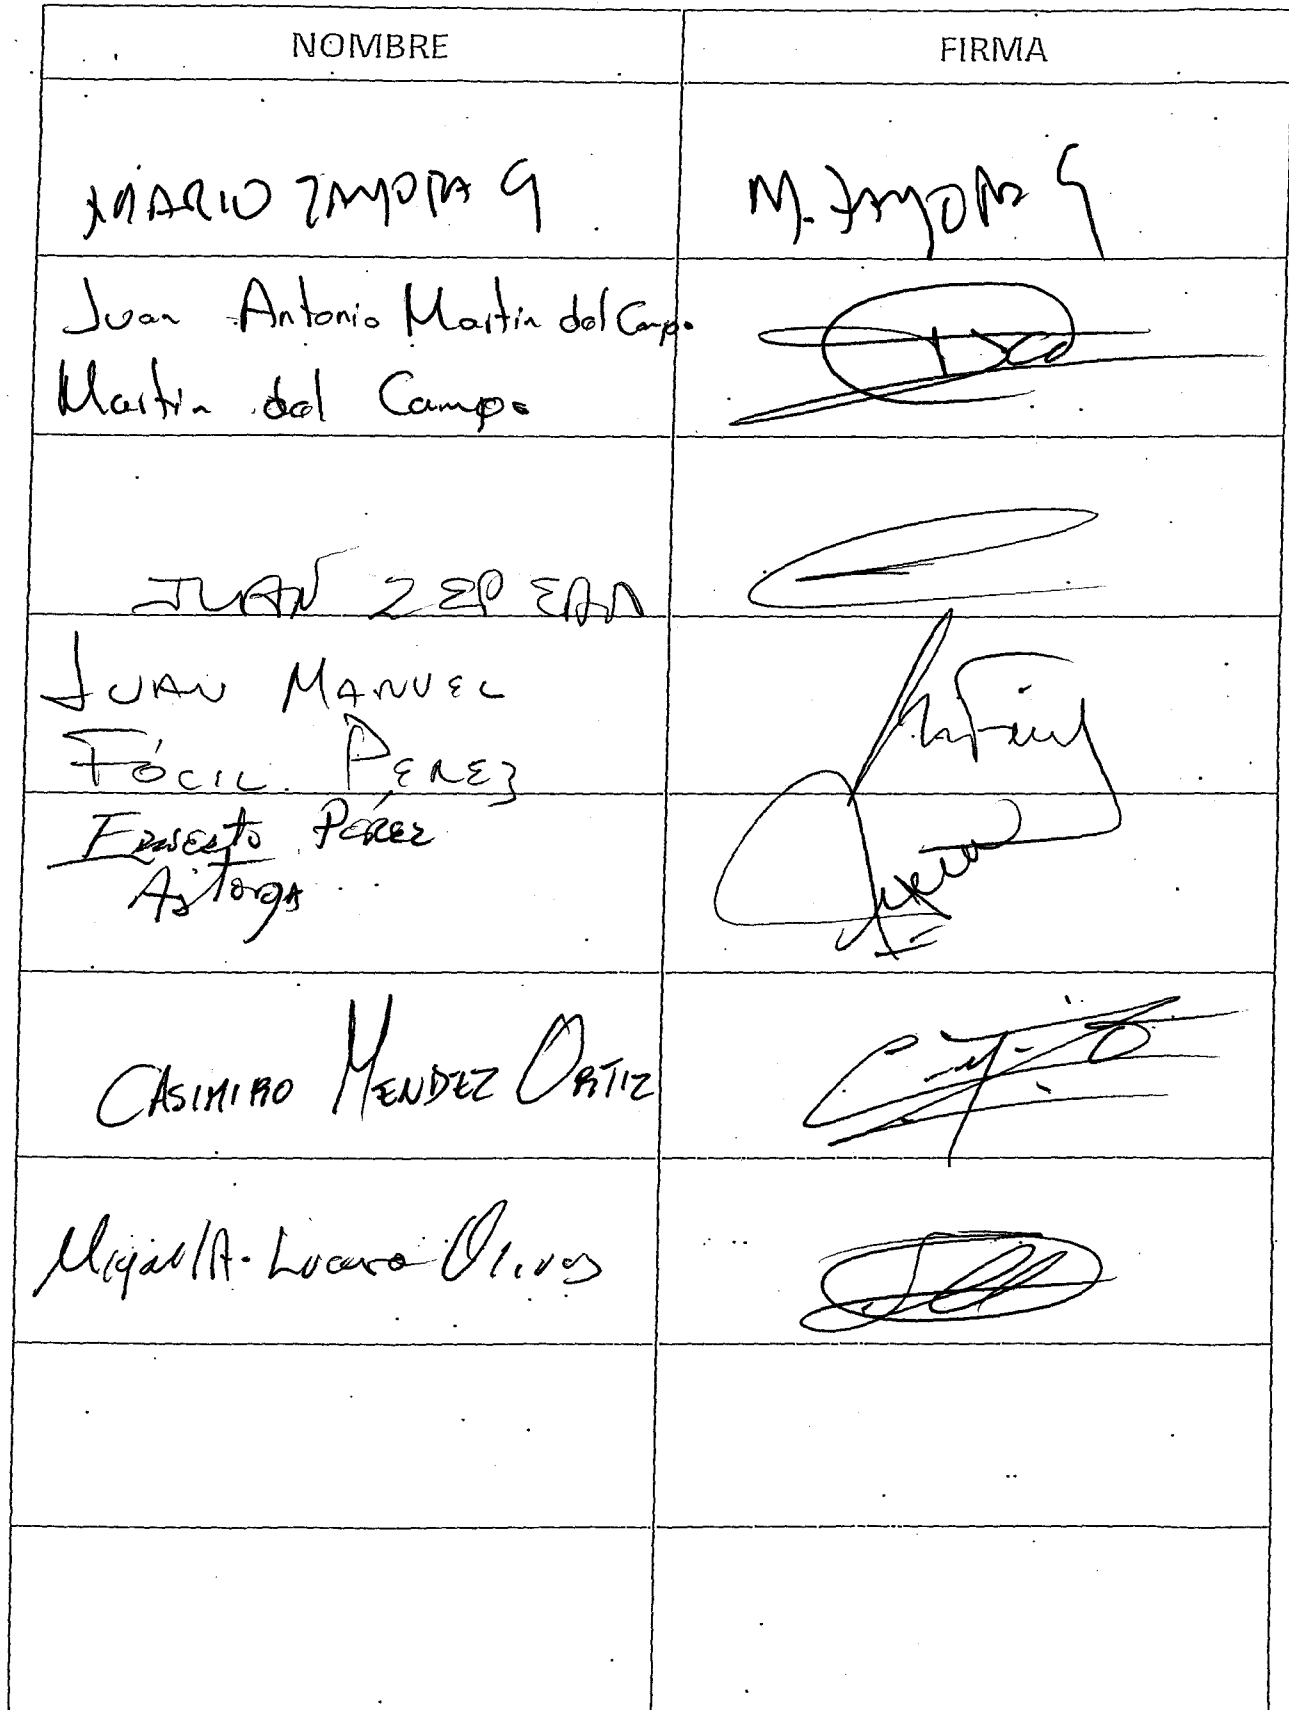 NOMBRE FIRMA
MARIO ZAMORA G M. ZAMORA G
Juan Antonio Martin del Campo
Martin del Campo
JUAN ZEPEDA
JUAN MANUEL
FÓCIL PEREZ
ERNESTO PÉREZ
Astorga
CASIMIRO MENDEZ ORTIZ
Miguel A. Lucero Olivas